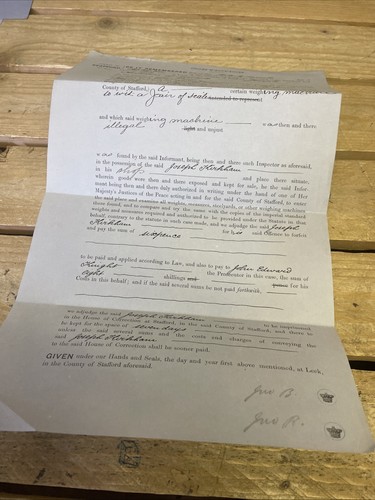 County of Stafford, a certain weighing machine
to wit a pair of scales intended to
and which said weighing machine was then and there
illegal light and unjust.
was found by the said Informant, being then and there such Inspector as aforesaid,
in the possession of the said Joseph Kirkham
in his shop and place there situate,
wherein goods were then and there exposed and kept for sale, he the said Infor-
mant being then and there duly authorised in writing under the hand of one of Her
Majesty's Justices of the Peace acting in and for the said County of Stafford, to enter
the said place and examine all weights, measures, steelyards, or other weighing machines
there found, and to compare and try the same with the copies of the imperial standard
weights and measures required and authorised to be provided under the statute in that
behalf, contrary to the statute in such case made, and we adjudge the said Joseph
Kirkham for his said Offence to forfeit
and pay the sum of sixpence
to be paid and applied according to Law, and also to pay to John Edward
Knight the Prosecutor in this case, the sum of
eight shillings and pence for his
Costs in this behalf; and if the said several sums be not paid forthwith,
we adjudge the said Joseph Kirkham to be imprisoned
in the House of Correction at Stafford, in the said County of Stafford, and there to
be kept for the space of seven days
unless the said several sums and the costs and charges of conveying the
said Joseph Kirkham
to the said House of Correction shall be sooner paid.
GIVEN under our Hands and Seals, the day and year first above mentioned, at Leek,
in the County of Stafford aforesaid.
Jno B.
Jno R.